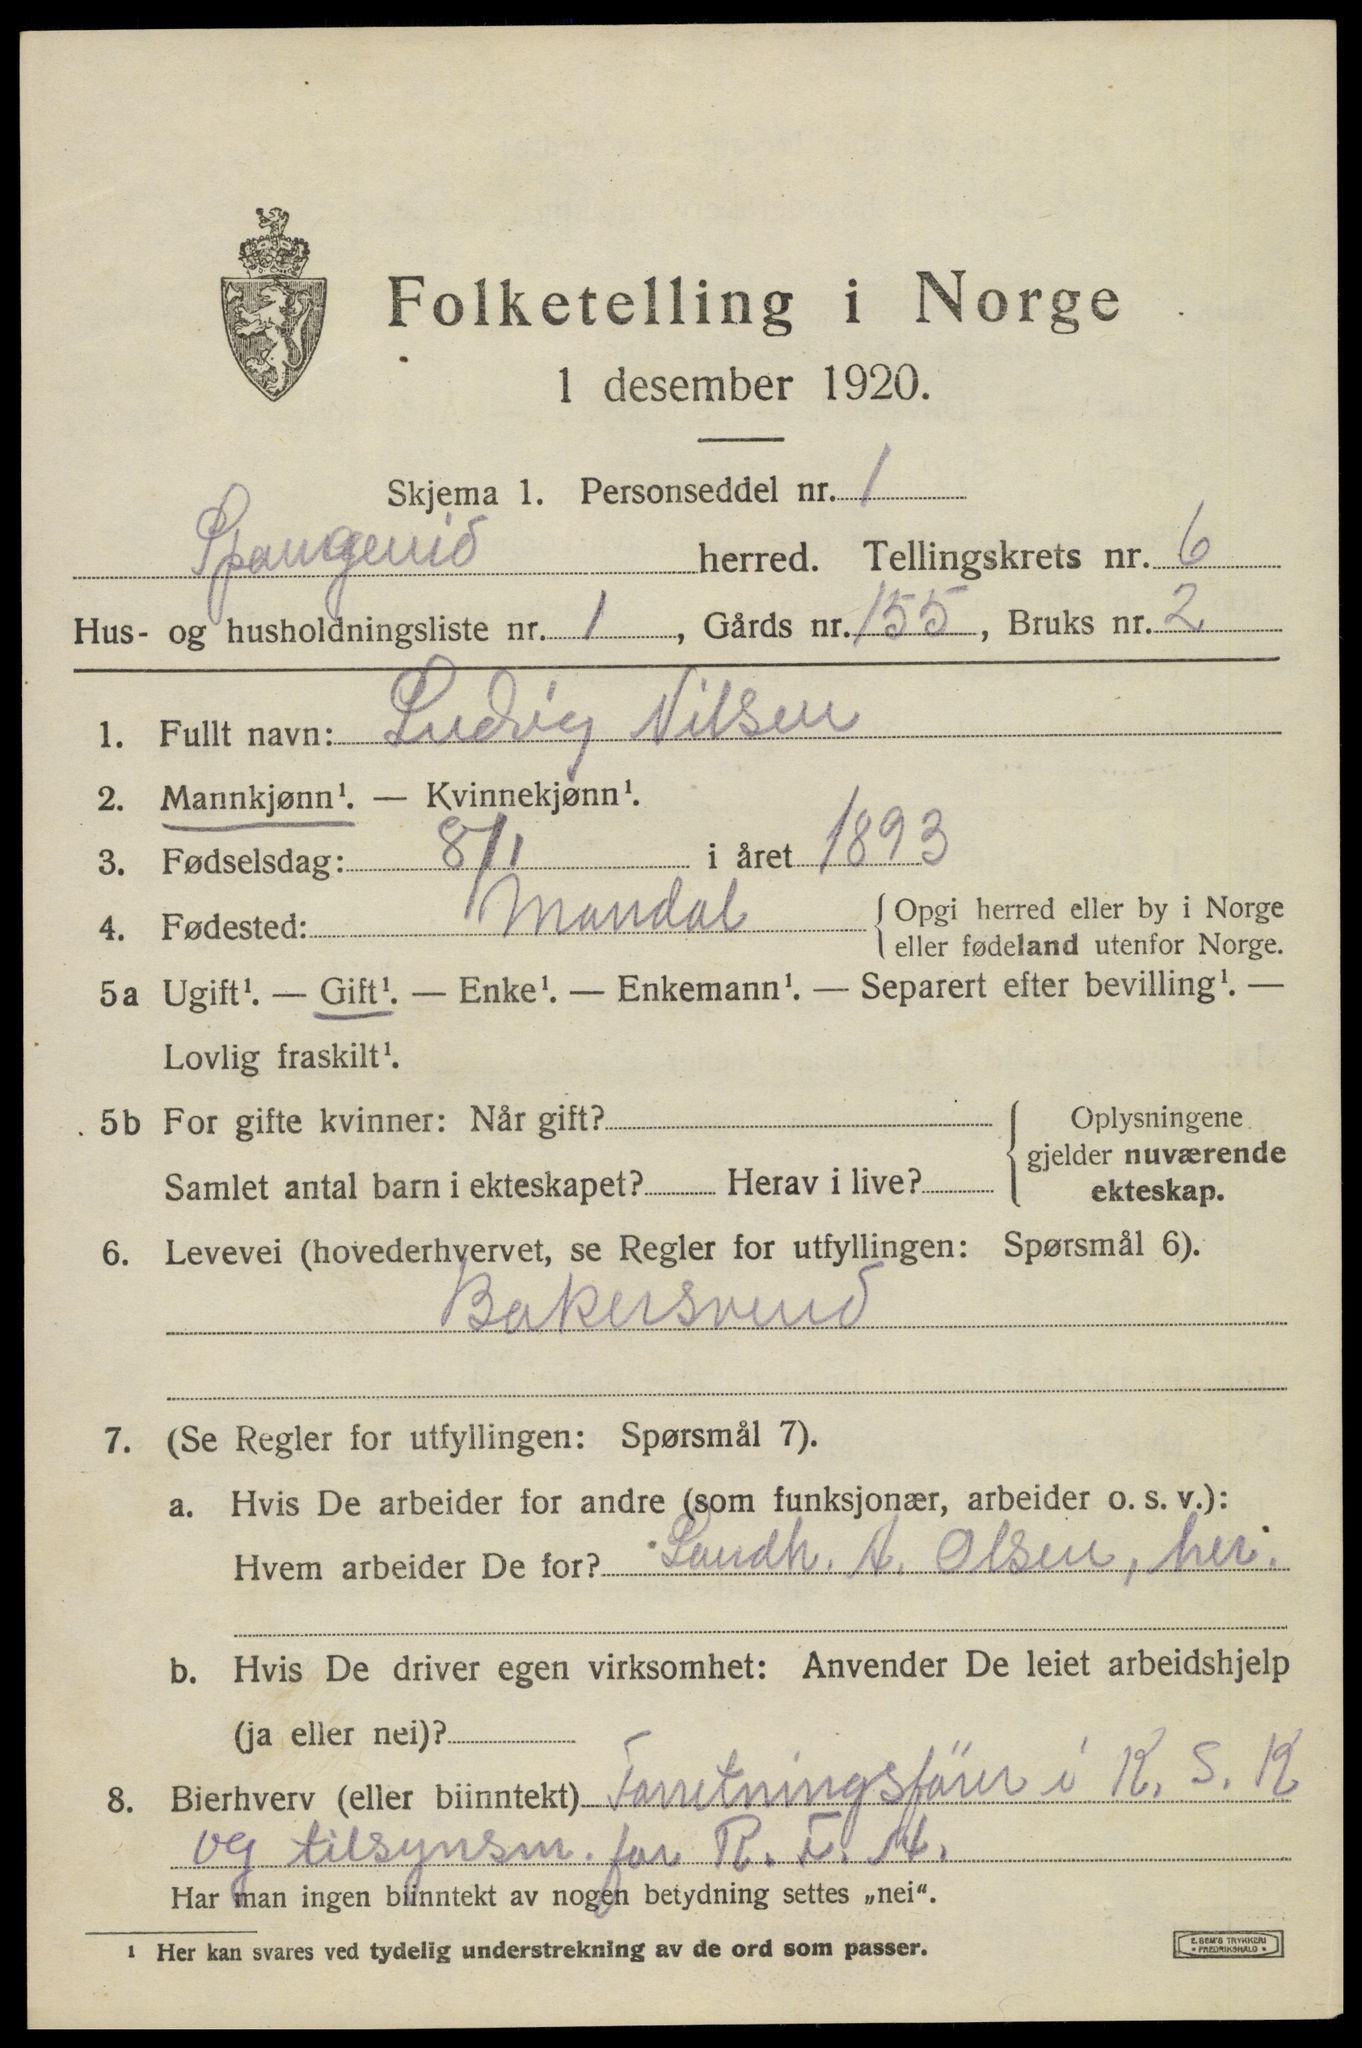 Folketelling i Norge
1 desember 1920.
Skjema 1. Personseddel nr. 1
Spangereid herred. Tellingskrets nr. 6
Hus- og husholdningsliste nr. 1, Gårds nr. 155, Bruks nr. 2
1. Fullt navn: Ludvig Nilsen
2. Mannkjønn¹. — Kvinnekjønn¹.
3. Fødselsdag: 8/1 i året 1893
4. Fødested: Mandal {Opgi herred eller by i Norge
eller fødeland utenfor Norge.
5a Ugift¹. — Gift¹. — Enke¹. — Enkemann¹. — Separert efter bevilling¹. —
Lovlig fraskilt¹.
5b For gifte kvinner: Når gift?
Samlet antal barn i ekteskapet? Herav i live?
{Oplysningene
gjelder nuværende
ekteskap.
6. Levevei (hovederhvervet, se Regler for utfyllingen: Spørsmål 6).
Bakersvend
7. (Se Regler for utfyllingen: Spørsmål 7).
a. Hvis De arbeider for andre (som funksjonær, arbeider o. s. v.):
Hvem arbeider De for? Landh. A. Olsen, her.
b. Hvis De driver egen virksomhet: Anvender De leiet arbeidshjelp
(ja eller nei)?
8. Bierhverv (eller biinntekt) Forretningsförer i K. S. K
og tilsynsm. for R. F. A.
Har man ingen biinntekt av nogen betydning settes „nei“.
¹ Her kan svares ved tydelig understrekning av de ord som passer.
E. SEM'S TRYKKERI
FREDRIKSHALD